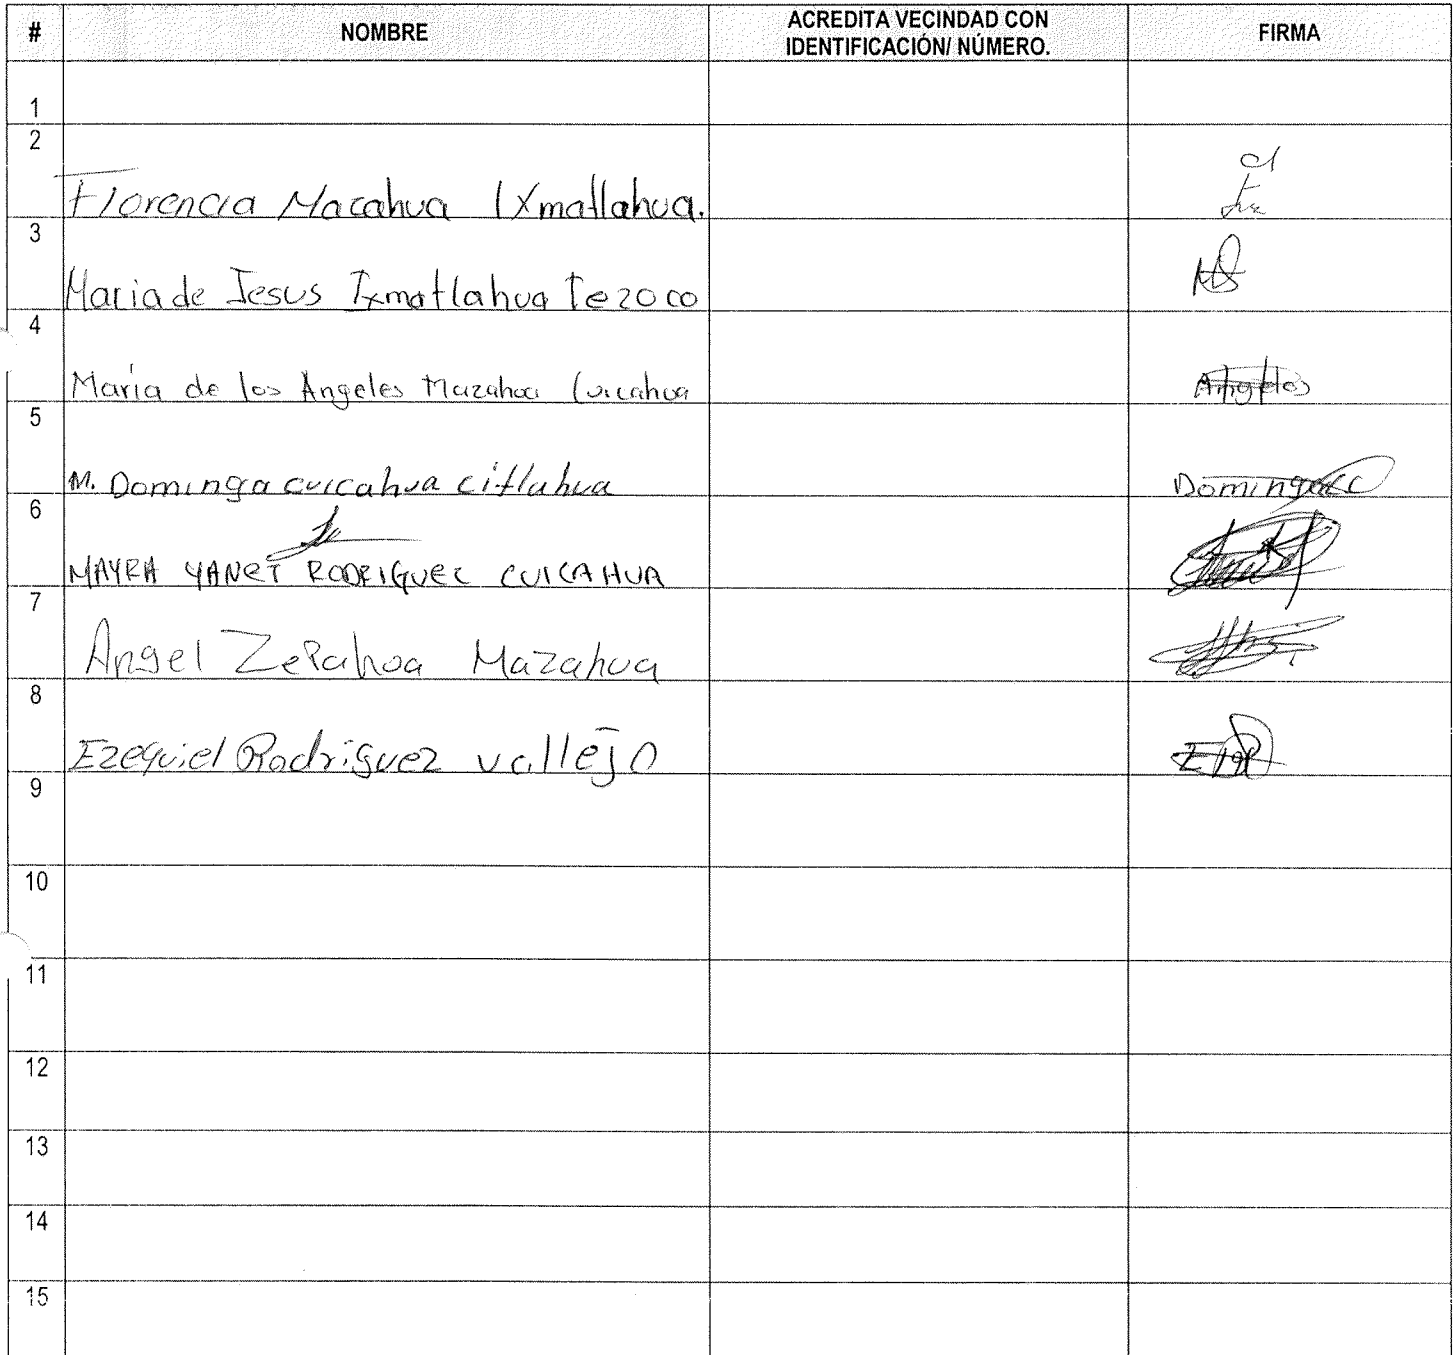 # NOMBRE ACREDITA VECINDAD CON IDENTIFICACIÓN/ NÚMERO. FIRMA
1
2 Florencia Macahua Ixmatlahua.
3 Maria de Jesus Ixmatlahua Tezoco
4 María de los Angeles Mazahua Cuicahua Angeles
5 M. Dominga cuicahua citlahua Dominga
6 MAYRA YANET RODRIGUEZ CUICAHUA
7 Angel Zepahua Mazahua
8 Ezequiel Rodriguez vallejo
9
10
11
12
13
14
15